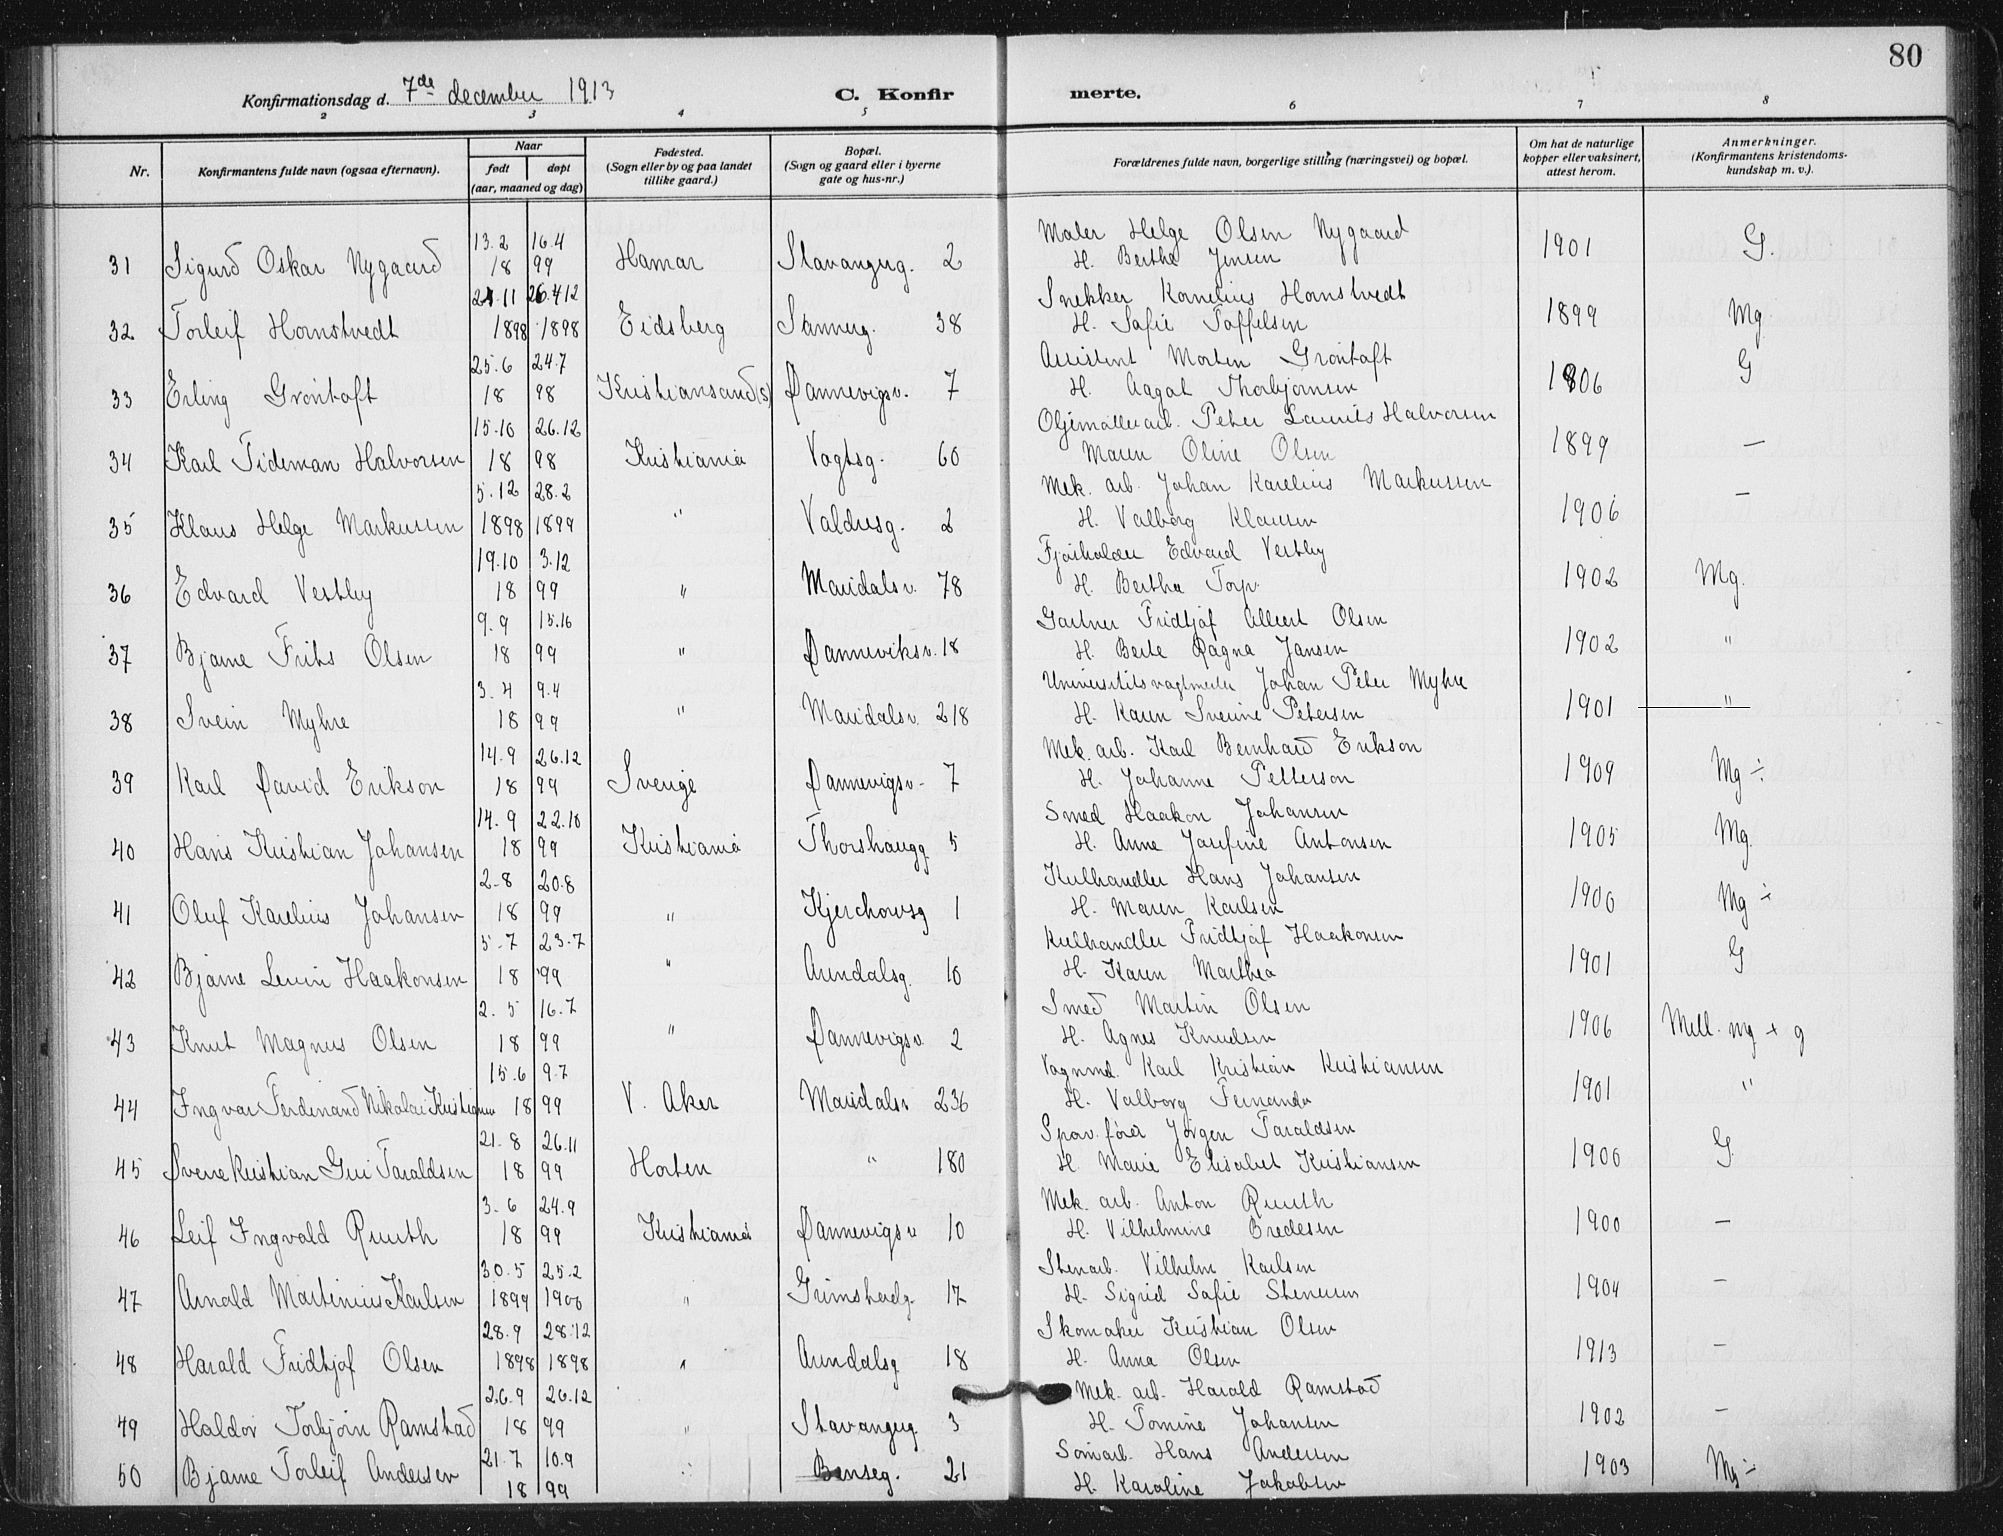 80
Konfirmationsdag d. 7de december 1913 C. Konfir merte.
2 3 4 5 6 7 8
Nr. Konfirmantens fulde navn (ogsaa efternavn). Naar født døpt (aar, maaned og dag) Fødested. (Sogn eller by og paa landet tillike gaard.) Bopæl. (Sogn og gaard eller i byerne gate og hus-nr.) Forældrenes fulde navn, borgerlige stilling (næringsvei) og bopæl. Om hat de naturlige kopper eller vaksinert, attest herom. Anmerkninger. (Konfirmantens kristendoms-kundskap m. v.).
13.2 16.4 Maler Helge Olsen Nygaard
31 Sigurd Oskar Nygaard 18 99 Hamar Stavangerg. 2 H. Bertha Jensen 1901 G.
11 26.12 Snekker Kornelius Hornstvedt
32 Torleif Hornstvedt 1898 1898 Eidsberg Sannerg. 38 H. Safie Toffelsen 1899 Mg
25.6 24.7 Assistent Morten Grøntoft
33 Erling Grøntoft 18 98 Kristiansand (S) Dannevigsv. 7 H. Aagot Thorbjørnsen 1906 G
15.10 26.12 Oljemøllearb. Peter Laurits Halvorsen
34 Karl Tideman Halvorsen 18 98 Kristiania Vogtsg. 60 Maren Oline Olsen 1899 —
5.12 28.2 Mek. arb. Johan Karelius Markussen
35 Klaus Helge Markussen 1898 1899 " Valdresg. 2 H. Valborg Klausen 1906 —
19.10 3.12 Edvard Vestby
36 Edvard Vestby 18 99 " Maridalsv. 78 H. Bertha Torp 1902 Mg.
9.9 15.10 Gartner Fridtjof Albert Olsen
37 Bjarne Frits Olsen 18 99 " Danneviksv. 18 H. Berte Ragna Jansen 1902 "
3.4 9.4 Universitetsvagtmester Johan Peter Myhre
38 Svein Myhre 18 99 " Maridalsv. 218 H. Karen Sverine Petersen 1901 "
14.9 26.12 Mek. arb. Karl Bernhard Erikson
39 Karl David Erikson 18 99 Sverige Dannevigsv. 7 H. Johanne Petterson 1909 Mg ÷
14.9 22.10 Smed Haakon Johansen
40 Hans Kristian Johansen 18 99 Kristiania Thorshaugg. 5 H. Anne Josefine Antonsen 1905 Mg.
2.8 20.8 Kulhandler Hans Johansen
41 Oluf Karelius Johansen 18 99 " Kjerchowsg 1 H. Maren Karlsen 1906 Mg ÷
5.7 23.7 Kulhandler Fridtjof Haakonsen
42 Bjarne Levin Haakonsen 18 99 " Arendalsg. 10 H. Karen Marthea 1901 G
2.5 16.7 Smed Martin Olsen
43 Knut Magnus Olsen 18 99 " Dannevigsv. 2 H. Agnes Knudsen 1906 Mell. mg + g
15.6 9.7 Vognmd. Karl Kristian Kristiansen
44 Ingvar Ferdinand Nikolai Kristiansen 18 99 V. Aker Maridalsv 236 H. Valborg Fernanda 1901 "
21.8 26.11 Sporv. fører Jørgen Taraldsen
45 Sverre Kristian Gui Taraldsen 18 99 Horten " 180 H. Marie Elisabet Kristiansen 1906 G.
3.6 24.9 Mek. arb. Anton Ruuth
46 Leif Ingvald Ruuth 18 99 Kristiania Dannevigsv 10 H. Vilhelmine Bredesen 1900 —
30.5 25.2 Stenarb. Vilhelm Karlsen
47 Arnold Martinius Karlsen 1899 1900 " Grimstadg. 17 H. Sigrid Safie Stenersen 1904 —
28.9 28.12 Skomaker Kristian Olsen
48 Harald Fridtjof Olsen 1898 1898 " Arendalsg 18 H. Anna Olsen 1913 —
26.9 26.12 Mek. arb. Harald Ramstad
49 Haldor Torbjørn Ramstad 18 99 " Stavangerg. 3 H. Tomine Johansen 1902 —
21.7 10.9 Hans Andersen
50 Bjarne Torleif Andersen 18 99 " Benseg. 21 H. Karoline Jakobsen 1903 Mg ÷